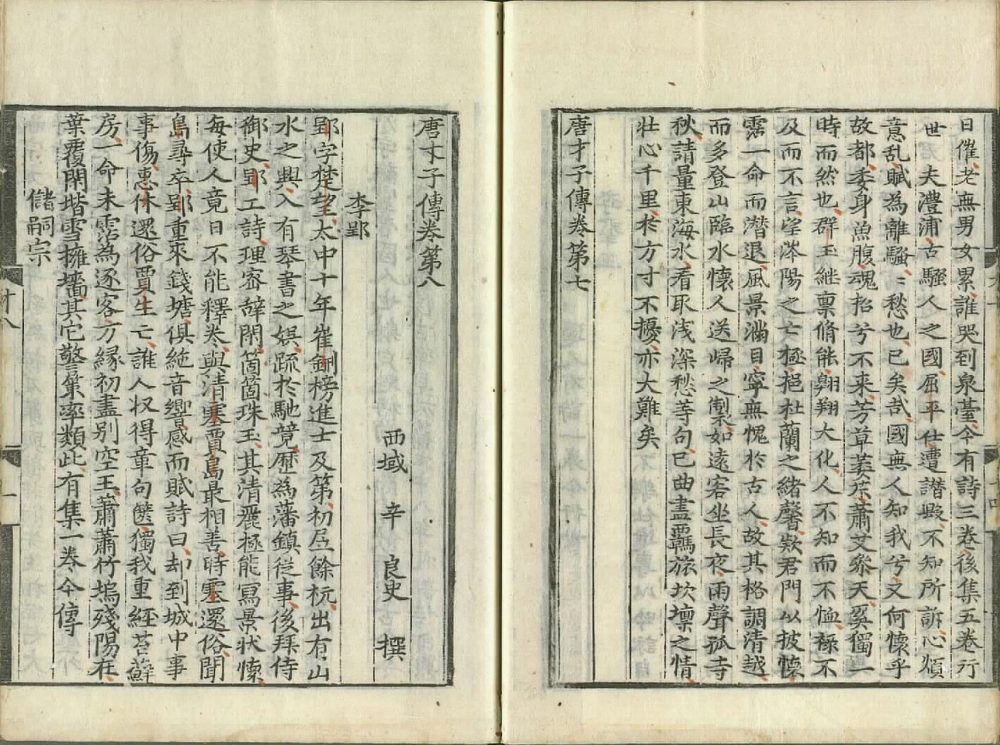 日催老無男女累誰哭到泉臺今有詩三卷後集五卷行
世夫澧浦古騷人之國屈平仕遭譖毀不知所訴心煩
意乱賦為離騷〻愁也已矣哉國無人知我兮又何懷乎
故都委身魚腹魂招兮不来芳草萎苶蕭艾參天奚獨一
時而然也群玉継禀脩能翱翔大化人不知而不恤祿不
及而不言望涔陽之亡極挹杜蘭之緒馨欵君門以披懷
霑一命而潜退風景滿目寧無愧於古人故其格調清越
而多登山臨水懷人送歸之製如遠客坐長夜雨聲孤寺
秋請量東海水看取浅深愁等句已曲盡羈旅坎壈之情
壮心千里於方寸不擾亦大難矣
唐才子傳卷第七
唐才子傳卷第八
西域 辛 良史 撰
李郢
郢字楚望大中十年崔鉶榜進士及第初居餘杭出有山
水之興入有琴書之娛踈於馳競歴為藩鎮從事後拜侍
御史郢工詩理密辭閑箇箇珠玉其清麗極能寫景狀懷
每使人竟日不能釋卷與清塞賈島最相善時塞還俗聞
島尋卒郢重來錢塘俱絶音響感而賦詩曰却到城中事
事傷惠休還俗賈生亡誰人収得章句篋獨我重經苔蘚
房一命未霑為逐客万緣初盡別空王蕭蕭竹塢殘陽在
葉覆閑堦雪擁墻其它警策率類此有集一卷今傳
儲嗣宗
才八
一